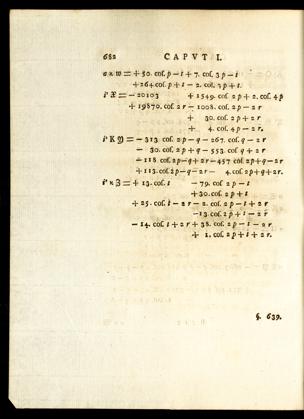 682 CAPUT I.
+ 50. cos. p − t + 7. cos. 3p − t
+ 264 cos. p + t − 2. cos. 3p + t.
= − 20103 + 1549. cos. 2p + 2. cos. 4p
+ 19870. cos. 2r − 1008. cos. 2p − 2r
+ 30. cos. 2p + 2r
+ 4. cos. 4p − 2r.
= − 313. cos. 2p − q − 267. cos. q − 2r
− 30. cos. 2p + q − 553. cos. q + 2r
− 118. cos. 2p − q + 2r − 457 cos. 2p + q − 2r
+ 113. cos. 2p − q − 2r − 4. cos. 2p + q + 2r.
= + 13. cos. t − 79. cos. 2p − t
+ 30. cos. 2p + t
+ 25. cos. t − 2r − 2. cos. 2p − t + 2r
− 13. cos. 2p + t − 2r
− 14. cos. t + 2r + 38. cos. 2p − t − 2r
+ 1. cos. 2p + t + 2r.
§. 639.